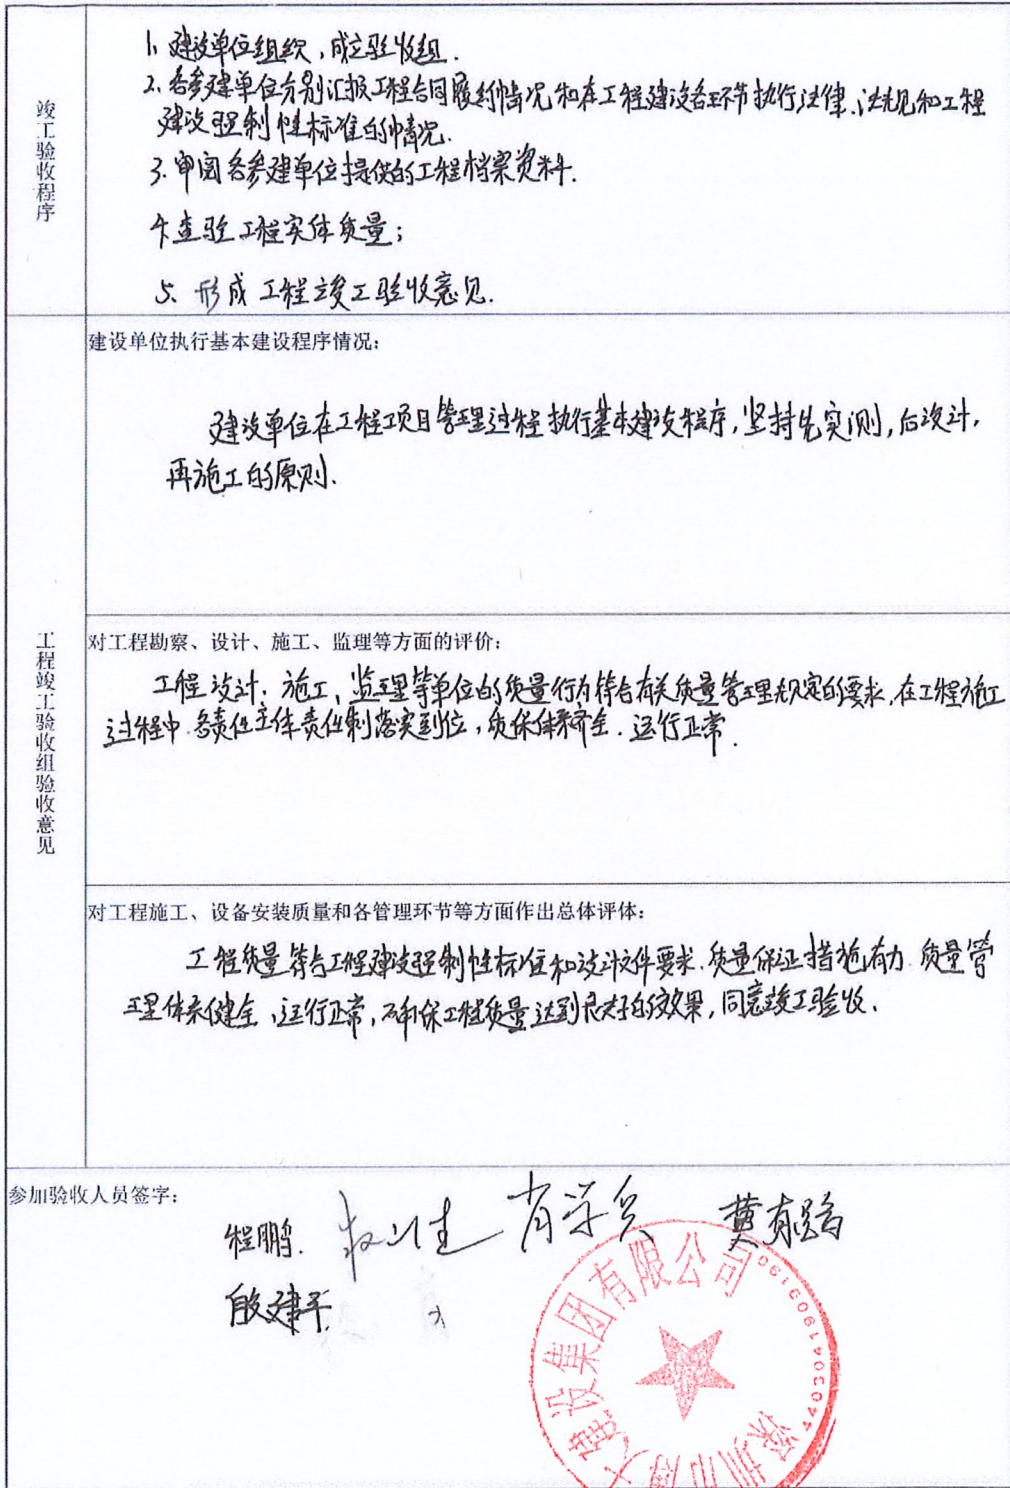 竣工验收程序
1、建设单位组织，成立验收组.
2、各参建单位分别汇报工程合同履约情况和在工程建设各环节执行法律、法规和工程
建设强制性标准的情况.
3、审阅各参建单位提供的工程档案资料.
4、查验工程实体质量；
5、形成工程竣工验收意见.
工程竣工验收组验收意见
建设单位执行基本建设程序情况：
建设单位在工程项目管理过程执行基本建设程序，坚持先实测，后设计，
再施工的原则.
对工程勘察、设计、施工、监理等方面的评价：
工程设计、施工、监理等单位的质量行为符合有关质量管理规定的要求，在工程施工
过程中.各责任主体责任制落实到位，质保体系齐全.运行正常.
对工程施工、设备安装质量和各管理环节等方面作出总体评体：
工程质量符合工程建设强制性标准和设计文件要求.质量保证措施有力.质量管
理体系健全，运行正常，确保工程质量达到良好的效果，同意竣工验收.
参加验收人员签字：
程鹏.
殷建平.
建设集团有限公司
深圳市